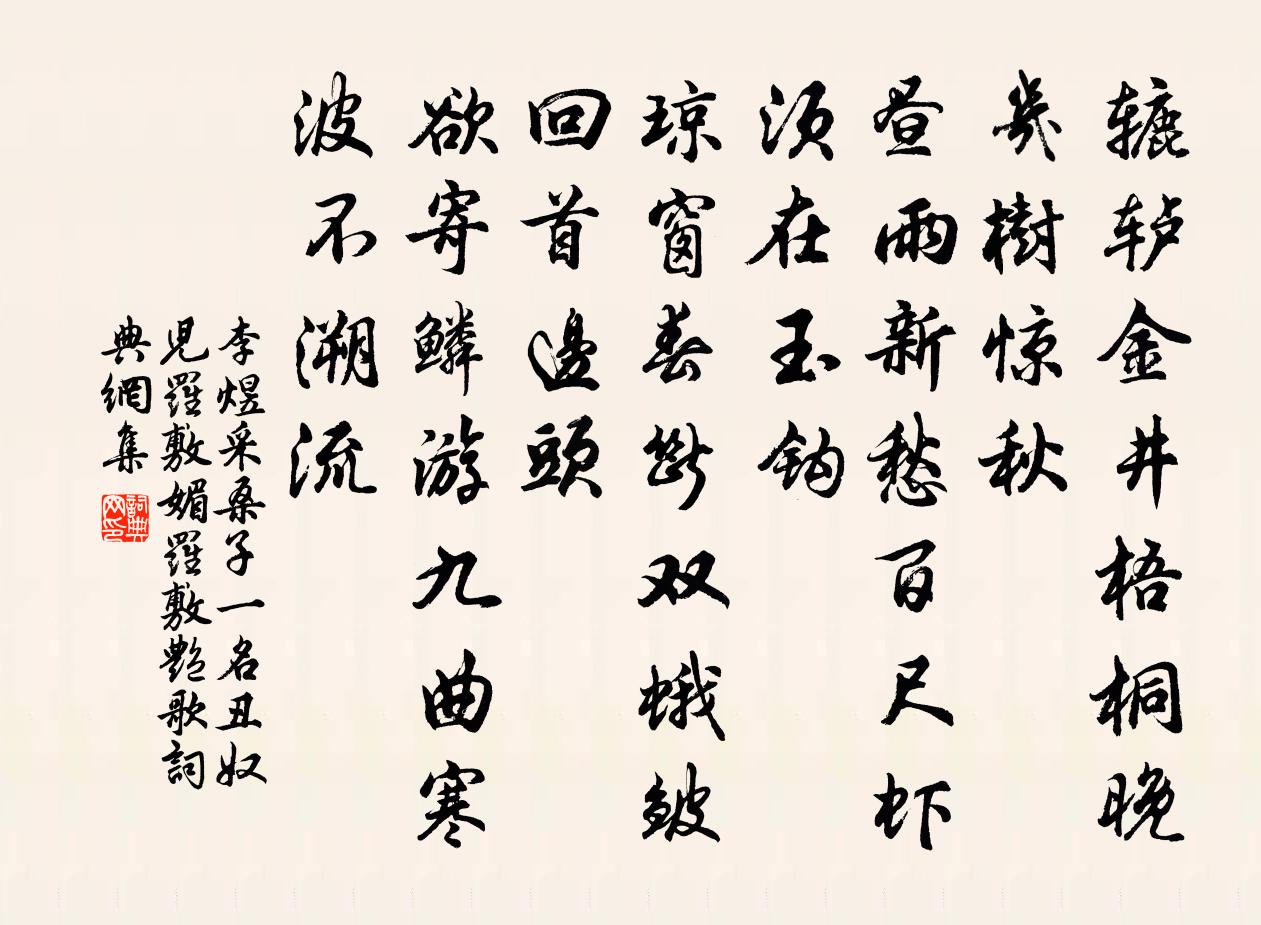 辘轳金井梧桐晚
幾樹惊秋
昼雨新愁百尺虾
须在玉钩
琼窗春断双蛾皱
回首邊頭
欲寄鳞游九曲寒
波不溯流
李煜采桑子一名丑奴
児羅敷媚羅敷艷歌詞
典網集
詞典網印